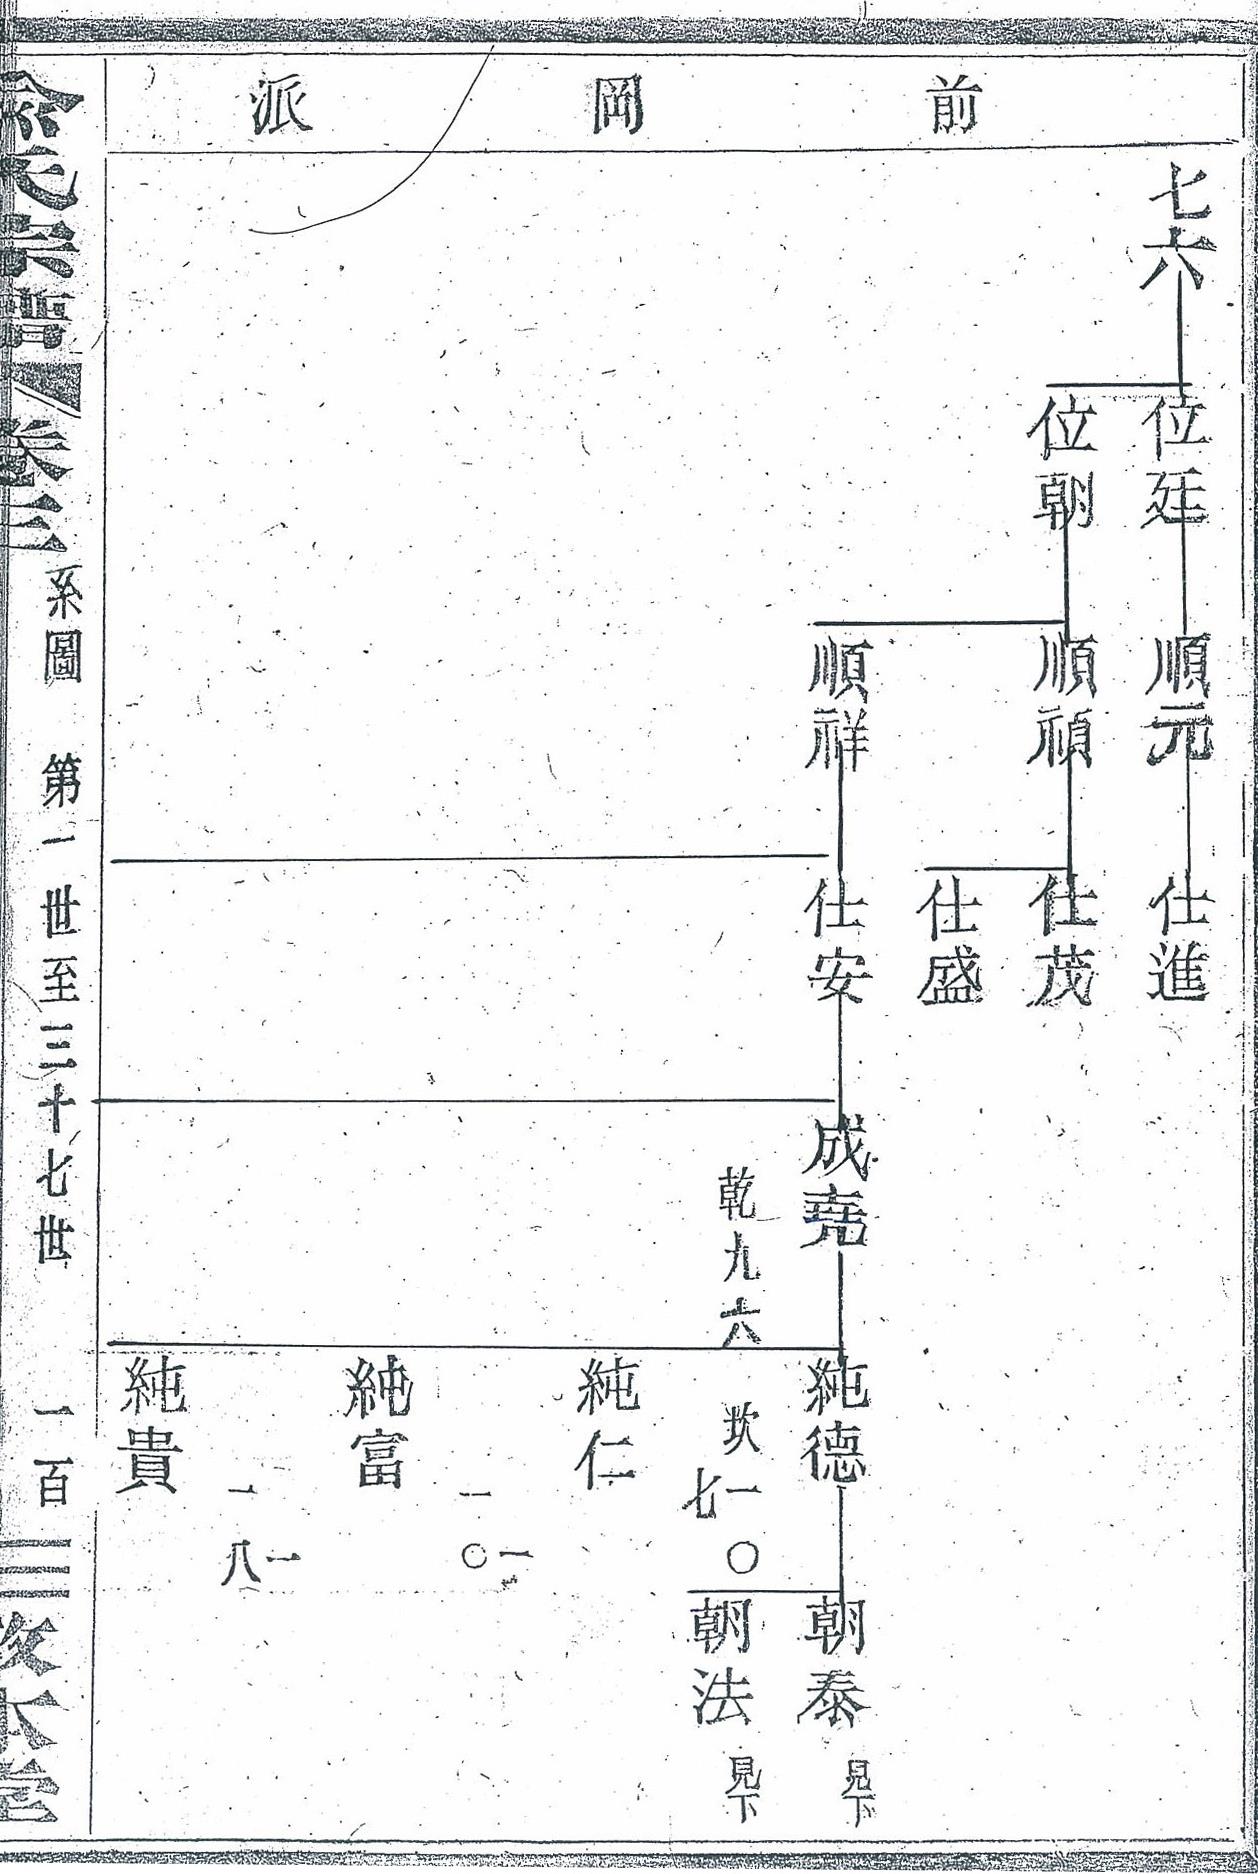 前岡派
七六
位廷
位朝
順元
順禎
順祥
仕進
仕茂
仕盛
仕安
成堯
乾九六
純德
坎一〇
七
純仁
一〇
純富
一八
純貴
朝泰 見下
朝法 見下
俞氏宗譜 卷三 系圖 第一世至三十七世 一百三 敦本堂